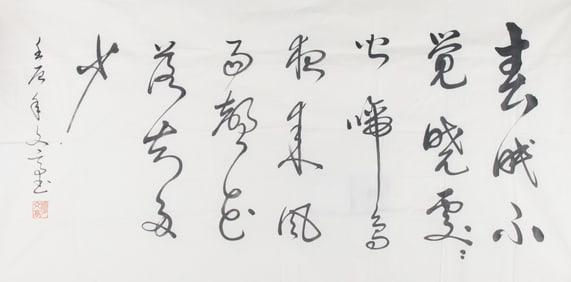 春眠不
觉晓處々
闻啼鸟
夜来风
雨聲花
落知多
少
壬辰年文书